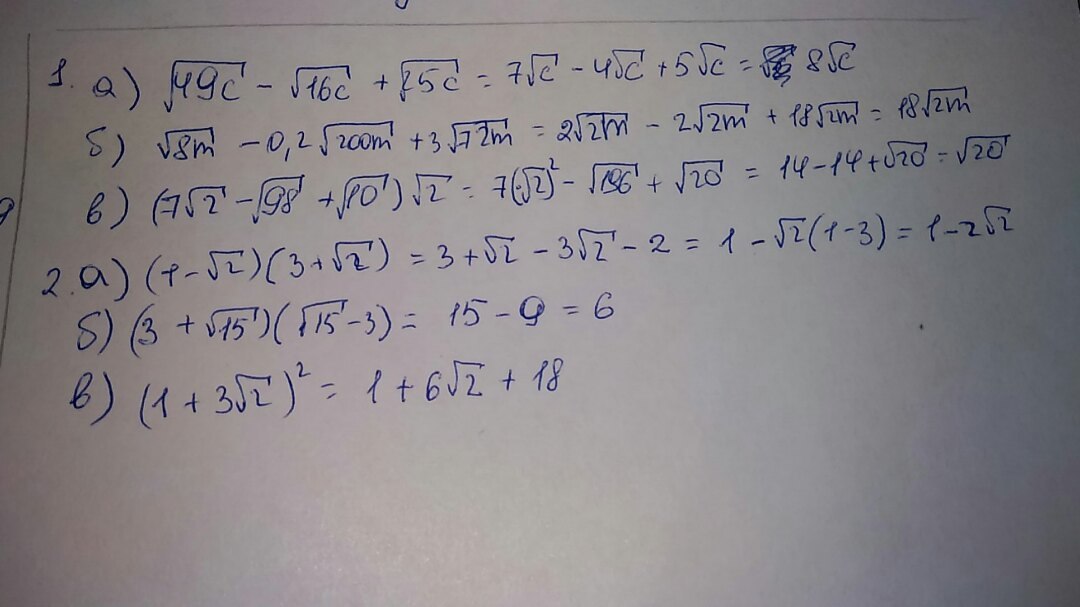 1. а) √49c - √16c + √25c = 7√c - 4√c + 5√c = 8√c
б) √8m - 0,2√200m + 3√72m = 2√2m - 2√2m + 18√2m = 18√2m
в) (7√2 - √98 + √10)√2 = 7(√2)² - √196 + √20 = 14 - 14 + √20 = √20
2. а) (1-√2)(3+√2) = 3+√2 - 3√2 - 2 = 1 - √2(1-3) = 1-2√2
б) (3 + √15)(√15 - 3) = 15 - 9 = 6
в) (1 + 3√2)² = 1 + 6√2 + 18